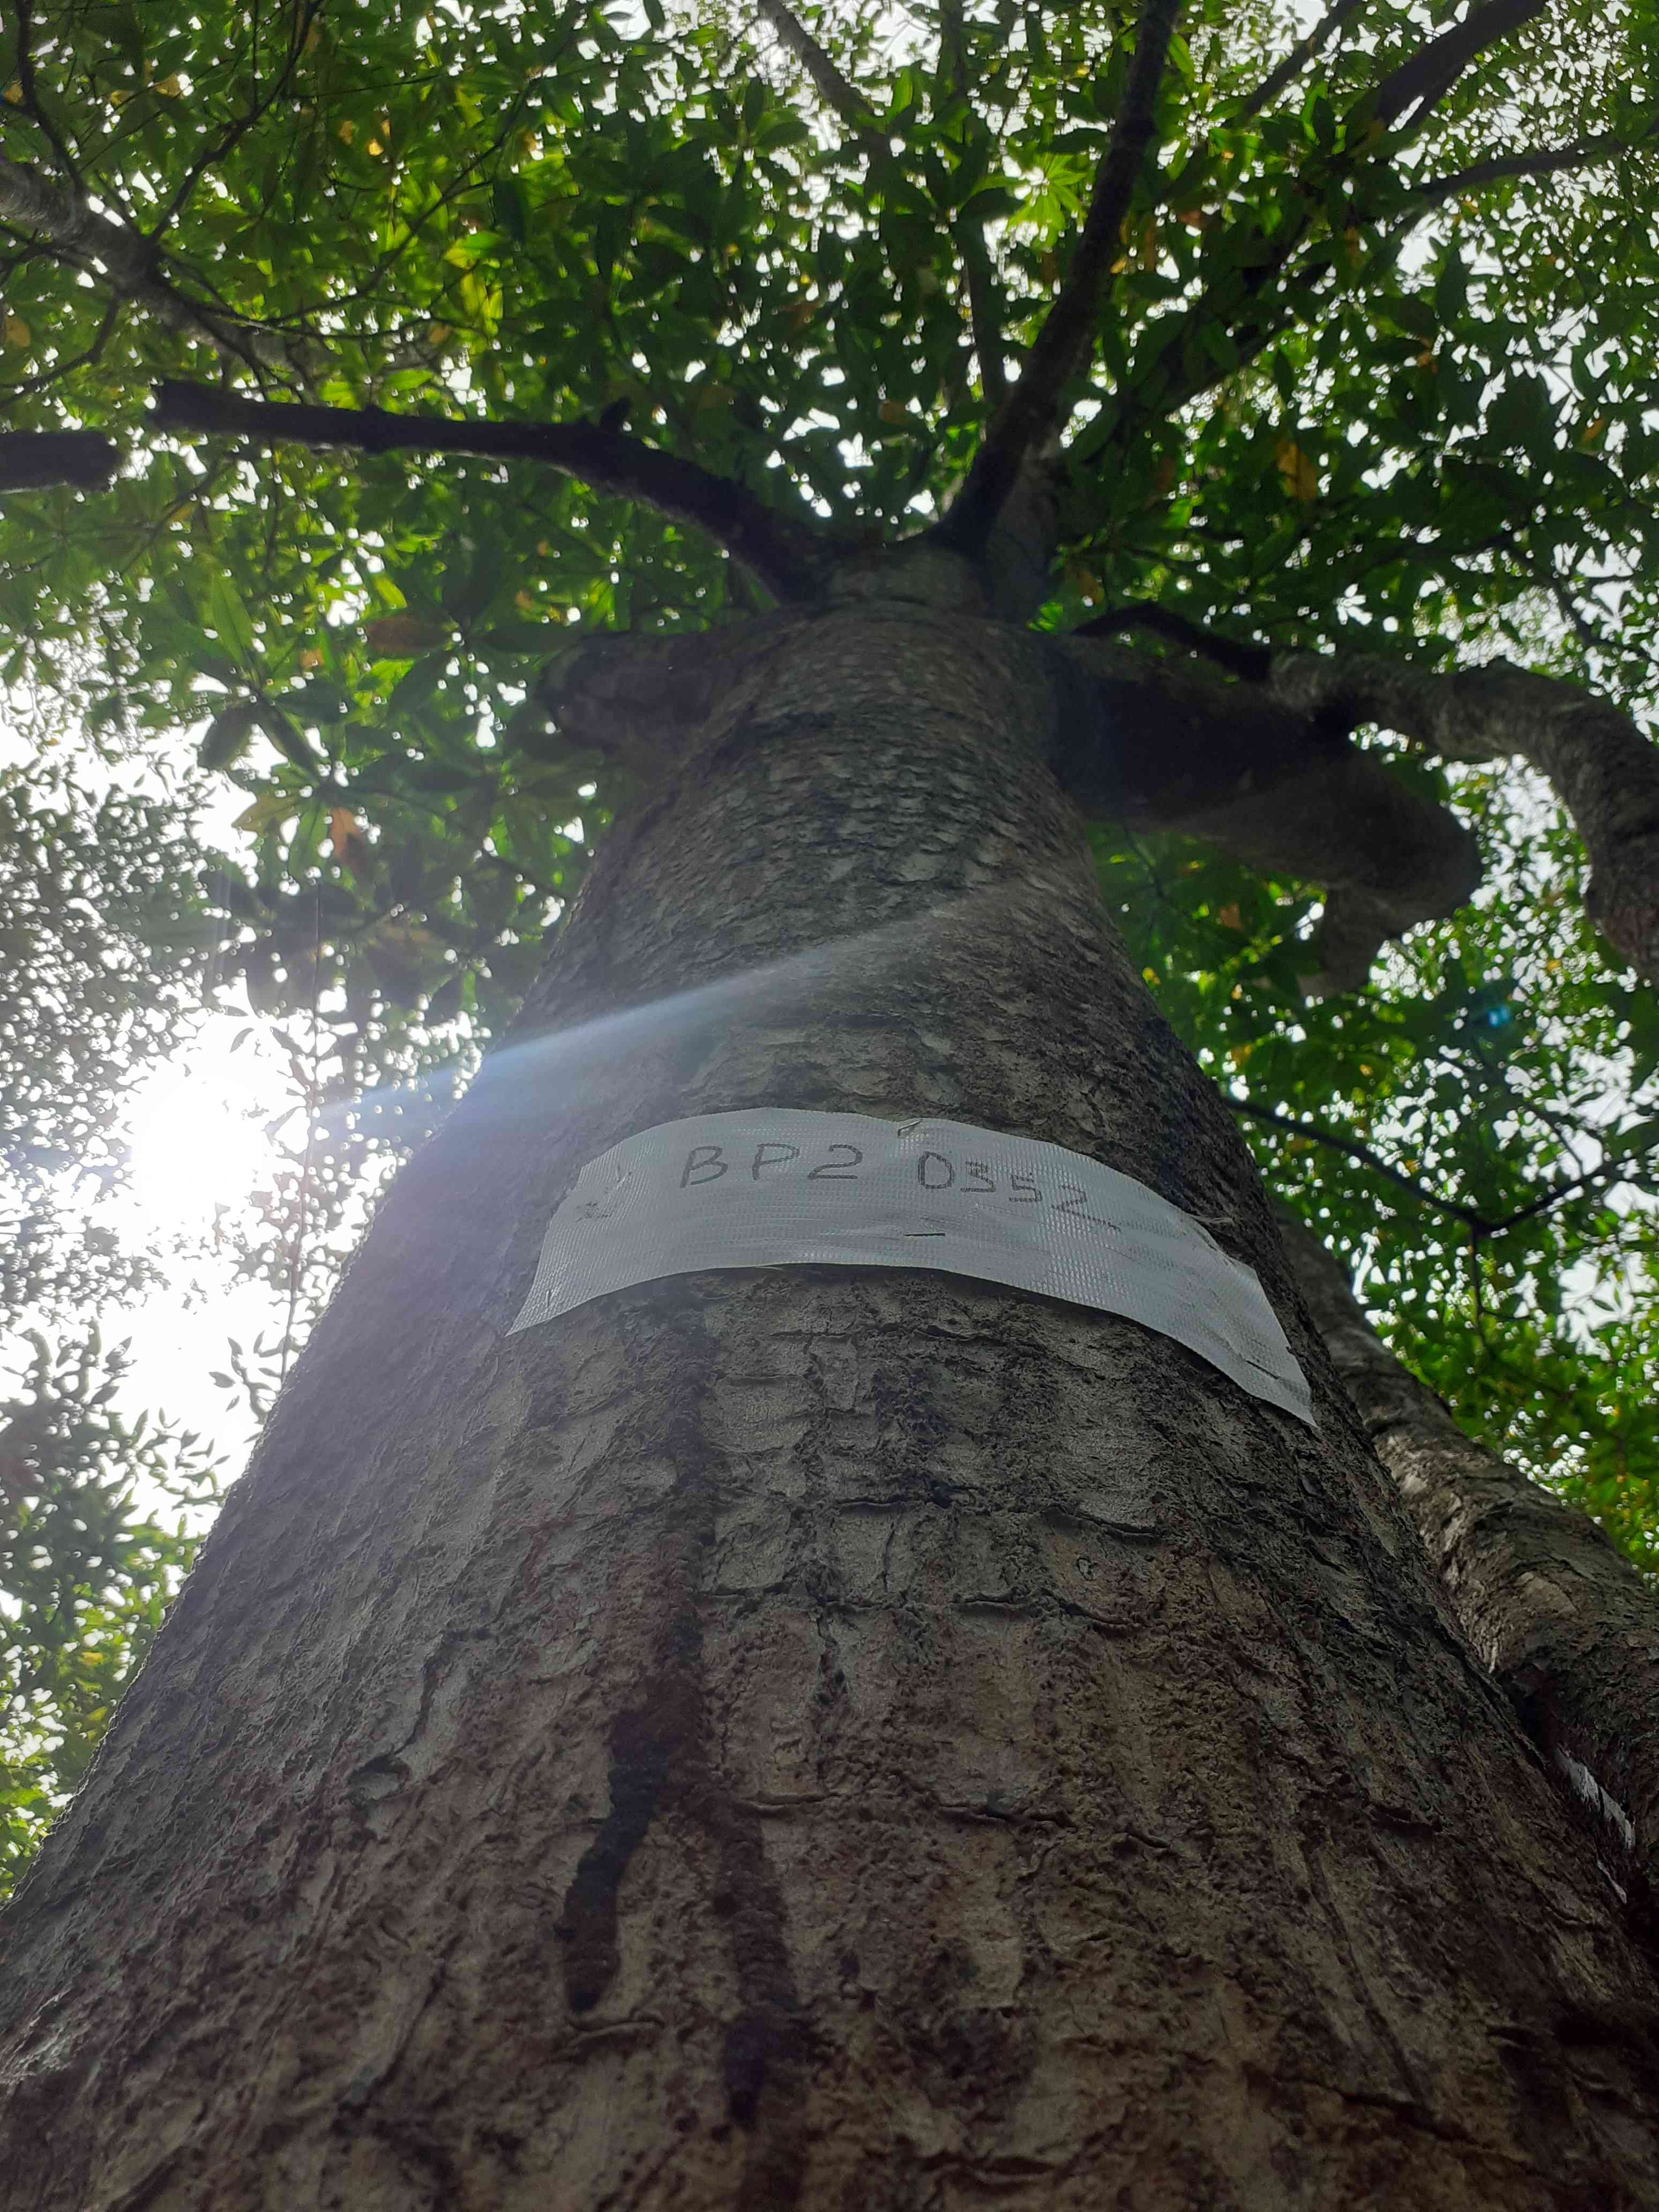 BP2 0352